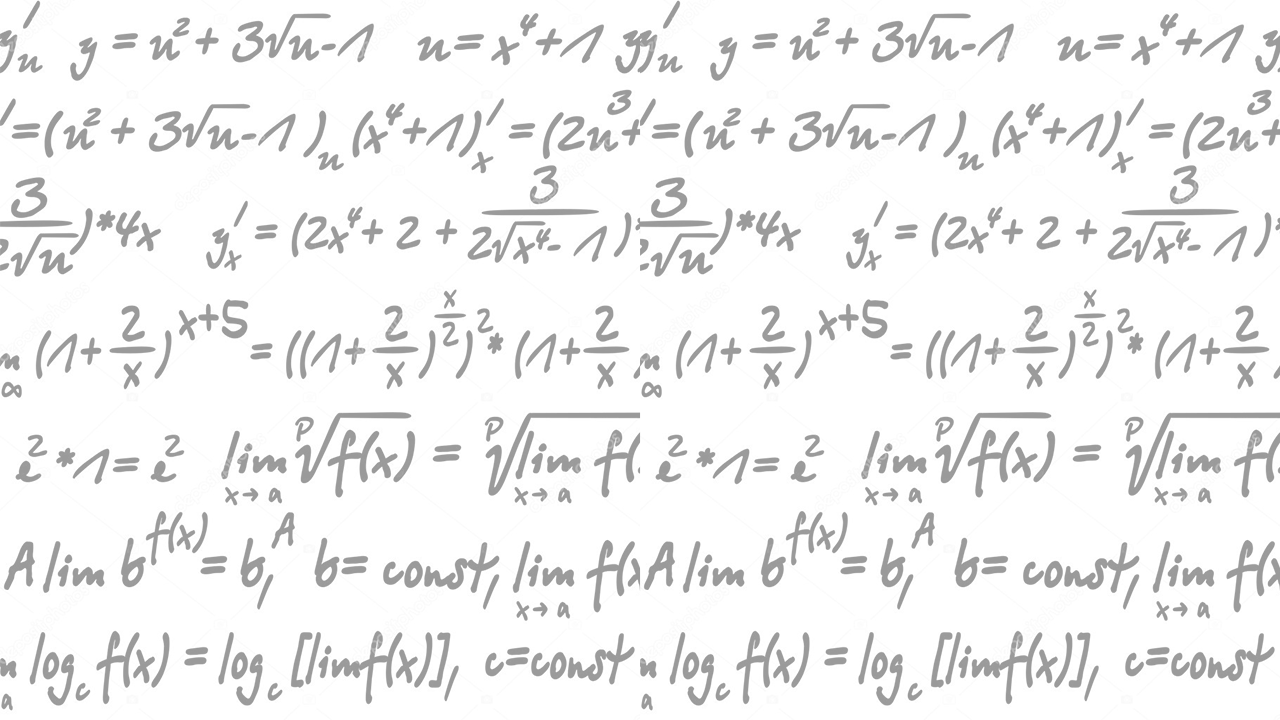 y'u y = u² + 3√u-1 u = x⁴+1 y y'u y = u² + 3√u-1 u = x⁴+1 y
'=(u² + 3√u-1)u (x⁴+1)'x = (2u³+ '=(u² + 3√u-1)u (x⁴+1)'x = (2u³+
3/2√u)*4x y'x = (2x⁴+ 2 + 3/2√x⁴-1) 3/2√u)*4x y'x = (2x⁴+ 2 + 3/2√x⁴-1)*
∞ (1+2/x)^x+5 = (((1+2/x)^x/2)²* (1+2/x ∞ (1+2/x)^x+5 = (((1+2/x)^x/2)²* (1+2/x
e² *1= e² lim x→a ᵖ√f(x) = ᵖ√lim x→a f( e² *1= e² lim x→a ᵖ√f(x) = ᵖ√lim x→a f(
A lim b^f(x) = b,^A b= const, lim x→a f(x A lim b^f(x) = b,^A b= const, lim x→a f(x
a log c f(x) = log c [lim f(x)], c=const a log c f(x) = log c [lim f(x)], c=const